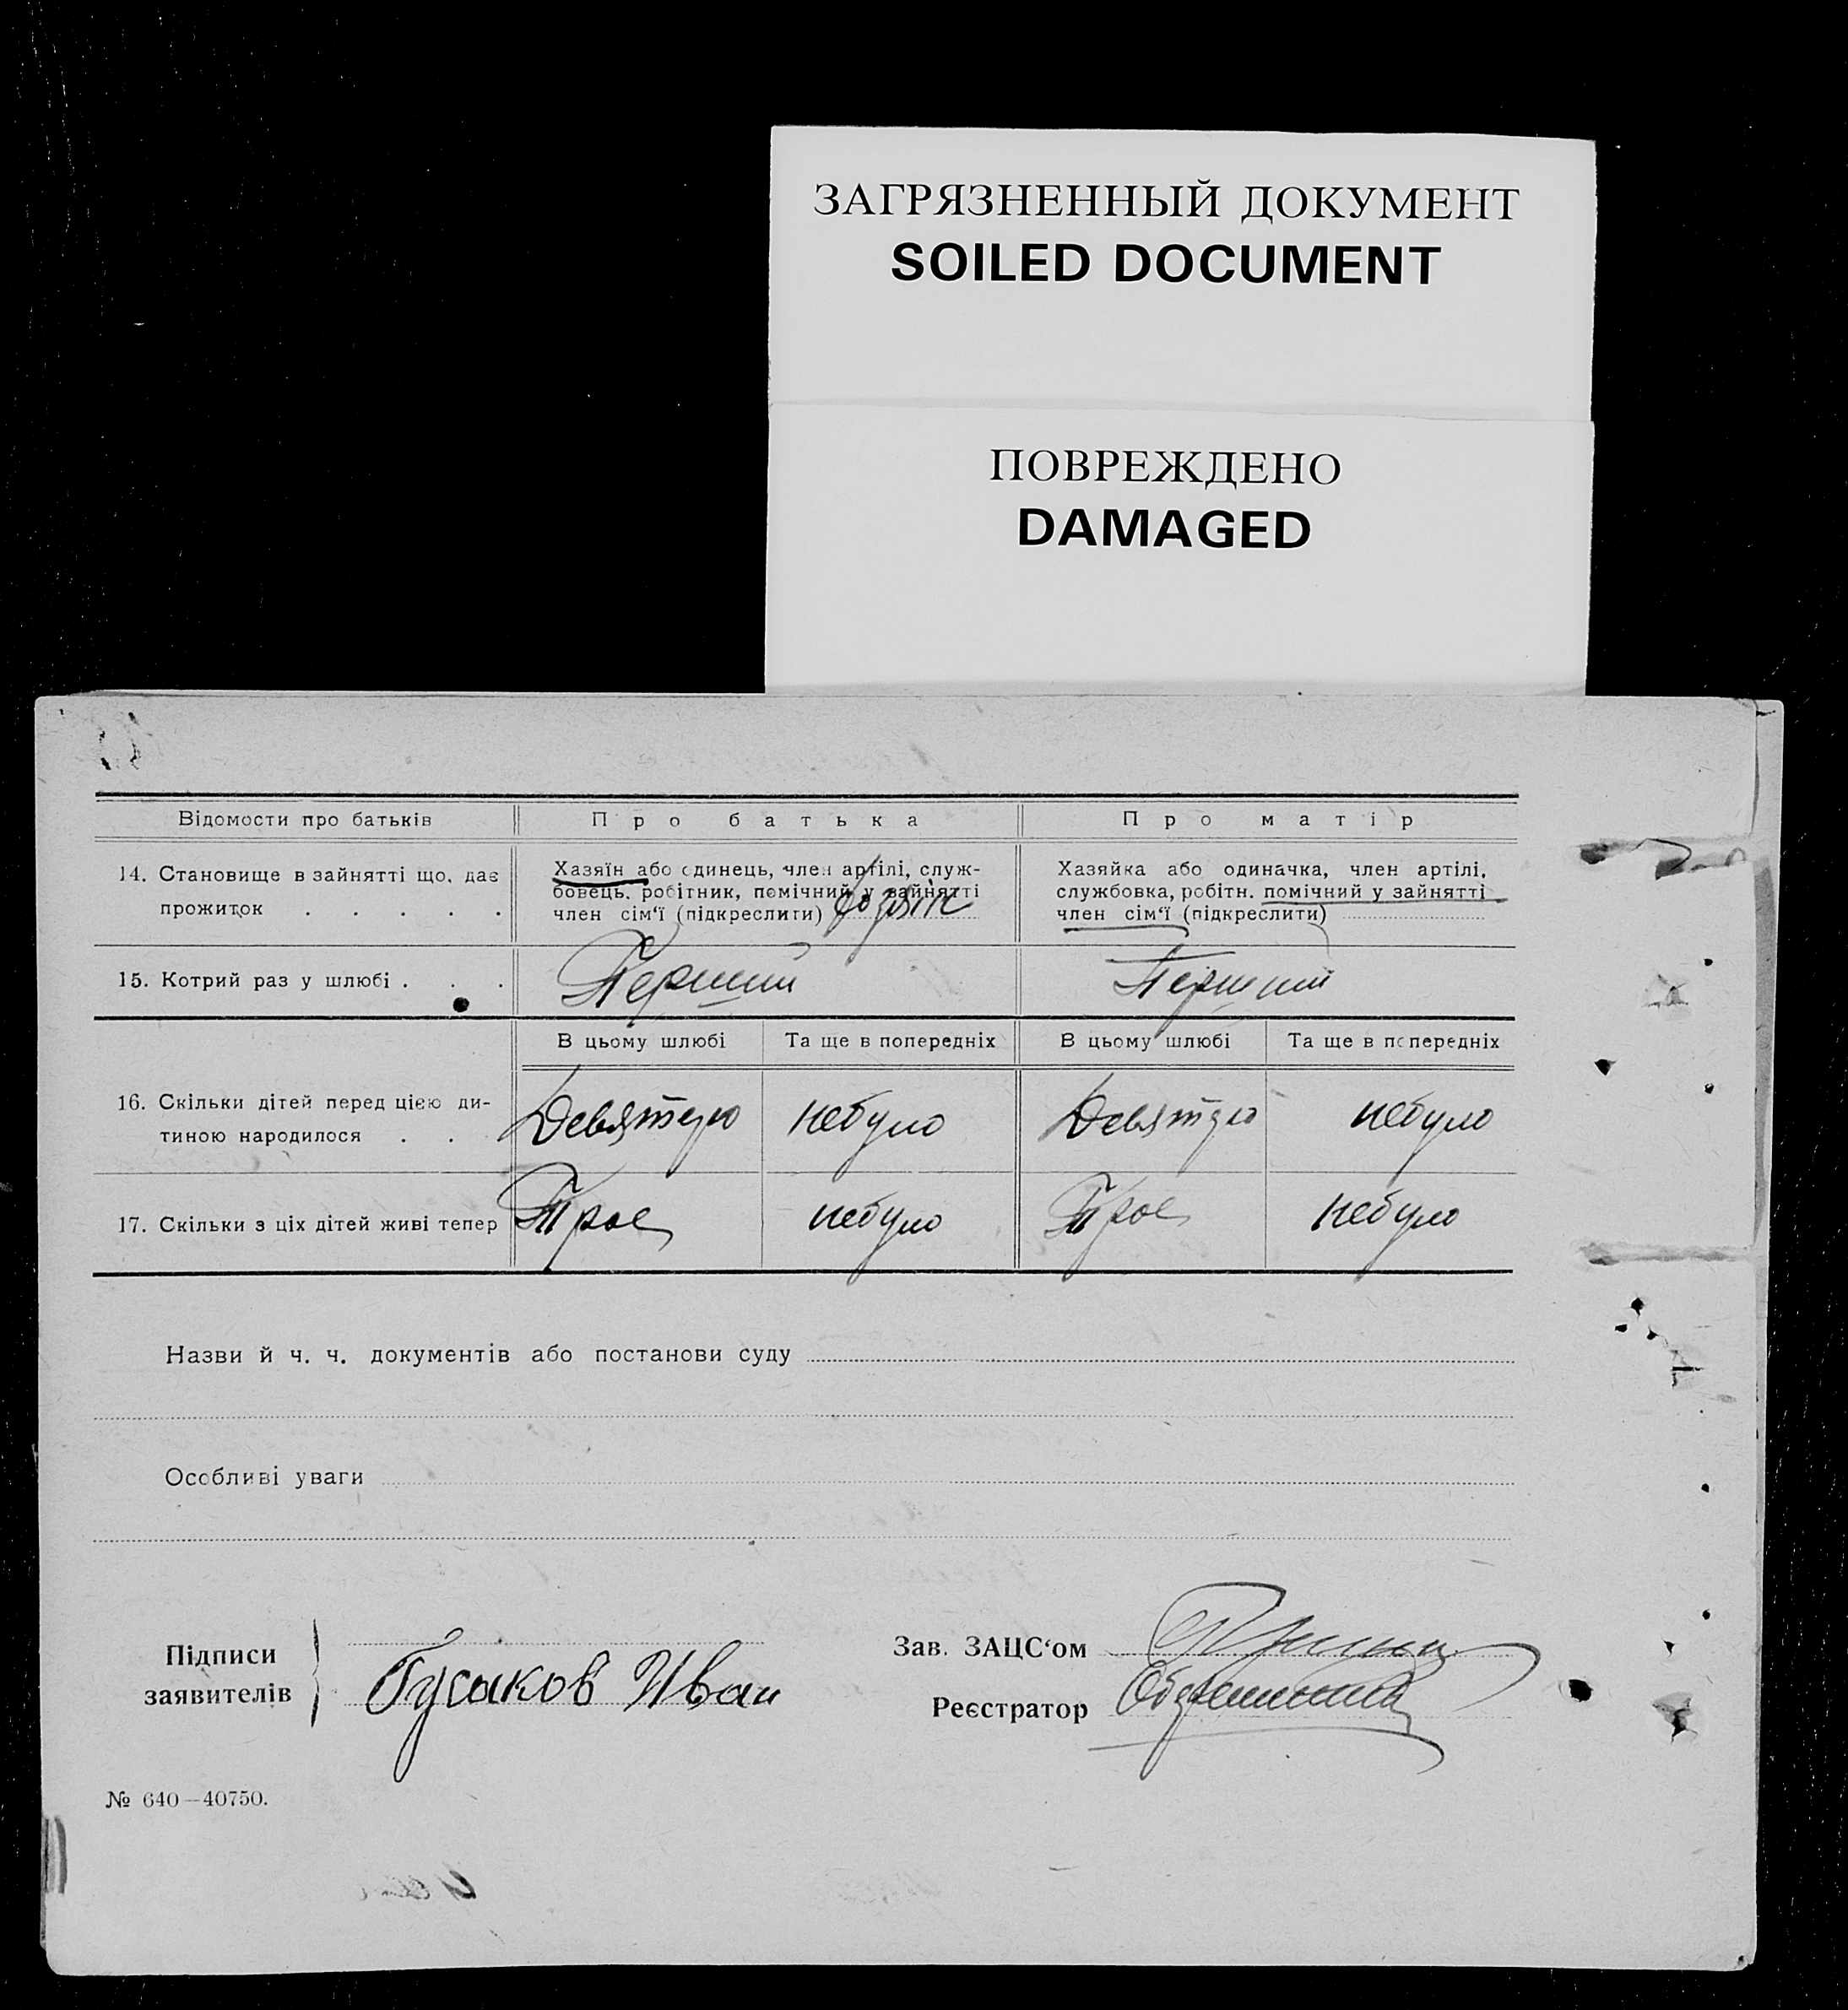 ЗАГРЯЗНЕННЫЙ ДОКУМЕНТ
SOILED DOCUMENT
ПОВРЕЖДЕНО
DAMAGED
Відомости про батьків Про батька Про матір
14. Становище в зайнятті що, дає прожиток . . . . .
Хазяїн або єдинець, член артілі, служ-
бовець, робітник, помічний у зайнятті
член сім'ї (підкреслити)
Хазяйка або одиначка, член артілі,
службовка, робітн. помічний у зайнятті
член сім'ї (підкреслити)
15. Котрий раз у шлюбі . . . Перший Перший
В цьому шлюбі Та ще в попередніх В цьому шлюбі Та ще в попередніх
16. Скільки дітей перед цією ди-
тиною народилося . . Девятеро небуло Девятеро небуло
17. Скільки з ціх дітей живі тепер Трое небуло Трое небуло
Назви й ч. ч. документів або постанови суду
Особливі уваги
Підписи
заявителів Гусаков Иван
Зав. ЗАЦС'ом
Реєстратор
№ 640—40750.